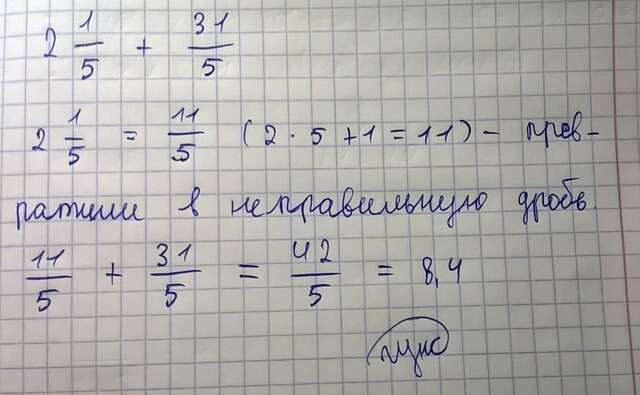 2 1/5 + 31/5
2 1/5 = 11/5 (2 · 5 + 1 = 11) - прев-
ратили в неправильную дробь.
11/5 + 31/5 = 42/5 = 8,4